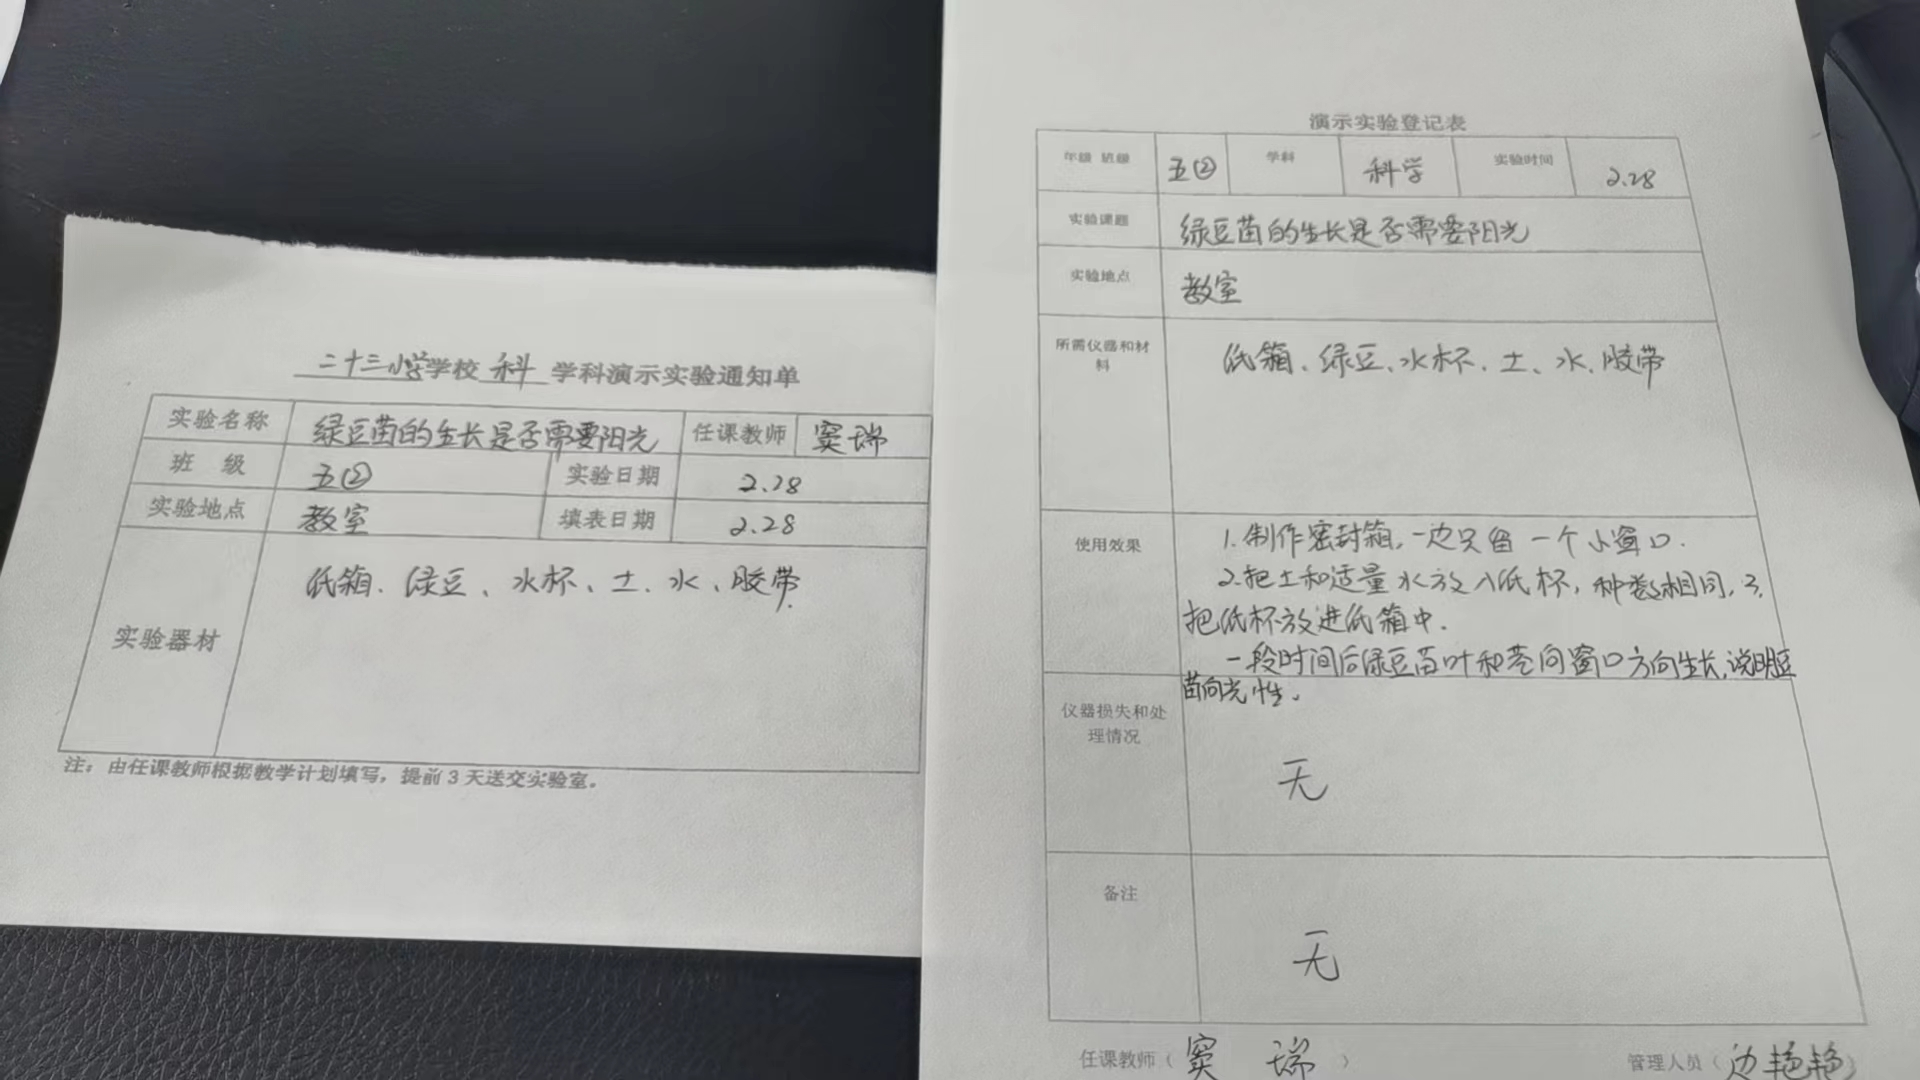 二十三小学学校 科 学科演示实验通知单
实验名称 绿豆苗的生长是否需要阳光 任课教师 窦瑞
班 级 五② 实验日期 2.28
实验地点 教室 填表日期 2.28
实验器材 纸箱、绿豆、水杯、土、水、胶带
注：由任课教师根据教学计划填写，提前3天送交实验室。
演示实验登记表
年级 班级 五② 学科 科学 实验时间 2.28
实验课题 绿豆苗的生长是否需要阳光
实验地点 教室
所需仪器和材料 纸箱、绿豆、水杯、土、水、胶带
使用效果 1.制作密封箱，一边只留一个小窗口.
2.把土和适量水放入纸杯，种数相同，3.
把纸杯放进纸箱中.
一段时间后绿豆苗叶和茎向窗口方向生长，说明豆
苗向光性。
仪器损失和处理情况 无
备注 无
任课教师（窦 瑞） 管理人员（边艳艳）